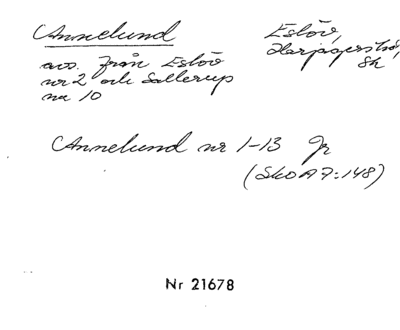 Annelund
Eslöv,
Harjagerstad,
Sk
avs. från Eslöv
nr 2 och Sallerup
nr 10
Annelund nr 1-13 Jr
(SkOA 7:148)
Nr 21678